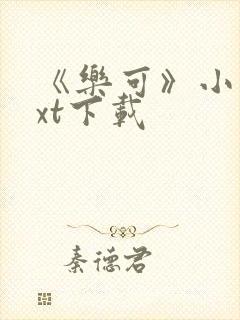 《樂可》小
xt下載
秦德君